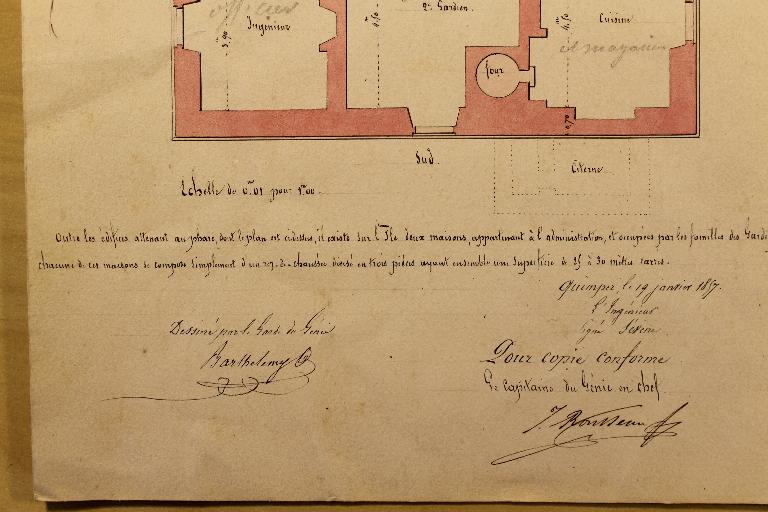 officier
Ingénieur
3,90
4,50
2e Gardien.
4,50
Cuisine
et magasin
four
0,70
Sud.
Citerne
Echelle de 0m01 pour 1m00.
Outre les édifices attenant au phare, dont le plan est ci-dessus, il existe sur l'Ile deux maisons, appartenant à l'administration, et occupées par les familles des Gardi
chacune de ces maisons se compose simplement d'un rez-de-chaussée divisé en trois pièces ayant ensemble une superficie de 25 à 30 mètres carrés.
Quimper le 19 janvier 1857.
l'Ingénieur
signé
Dessiné par le Garde du Génie
Barthelemy
Pour copie conforme
Le Capitaine du Génie en chef
J. Rousseau